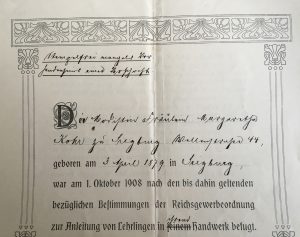 Stempelfrei mangels Vor
Die Modistin Fräulein Margarethe
zu Siegburg, 44,
geboren am 3 April 1879 in Siegburg,
war am 1. Oktober 1908 nach den bis dahin geltenden
bezüglichen Bestimmungen der Reichsgewerbeordnung
zur Anleitung von Lehrlingen in ihrem Handwerk befugt.